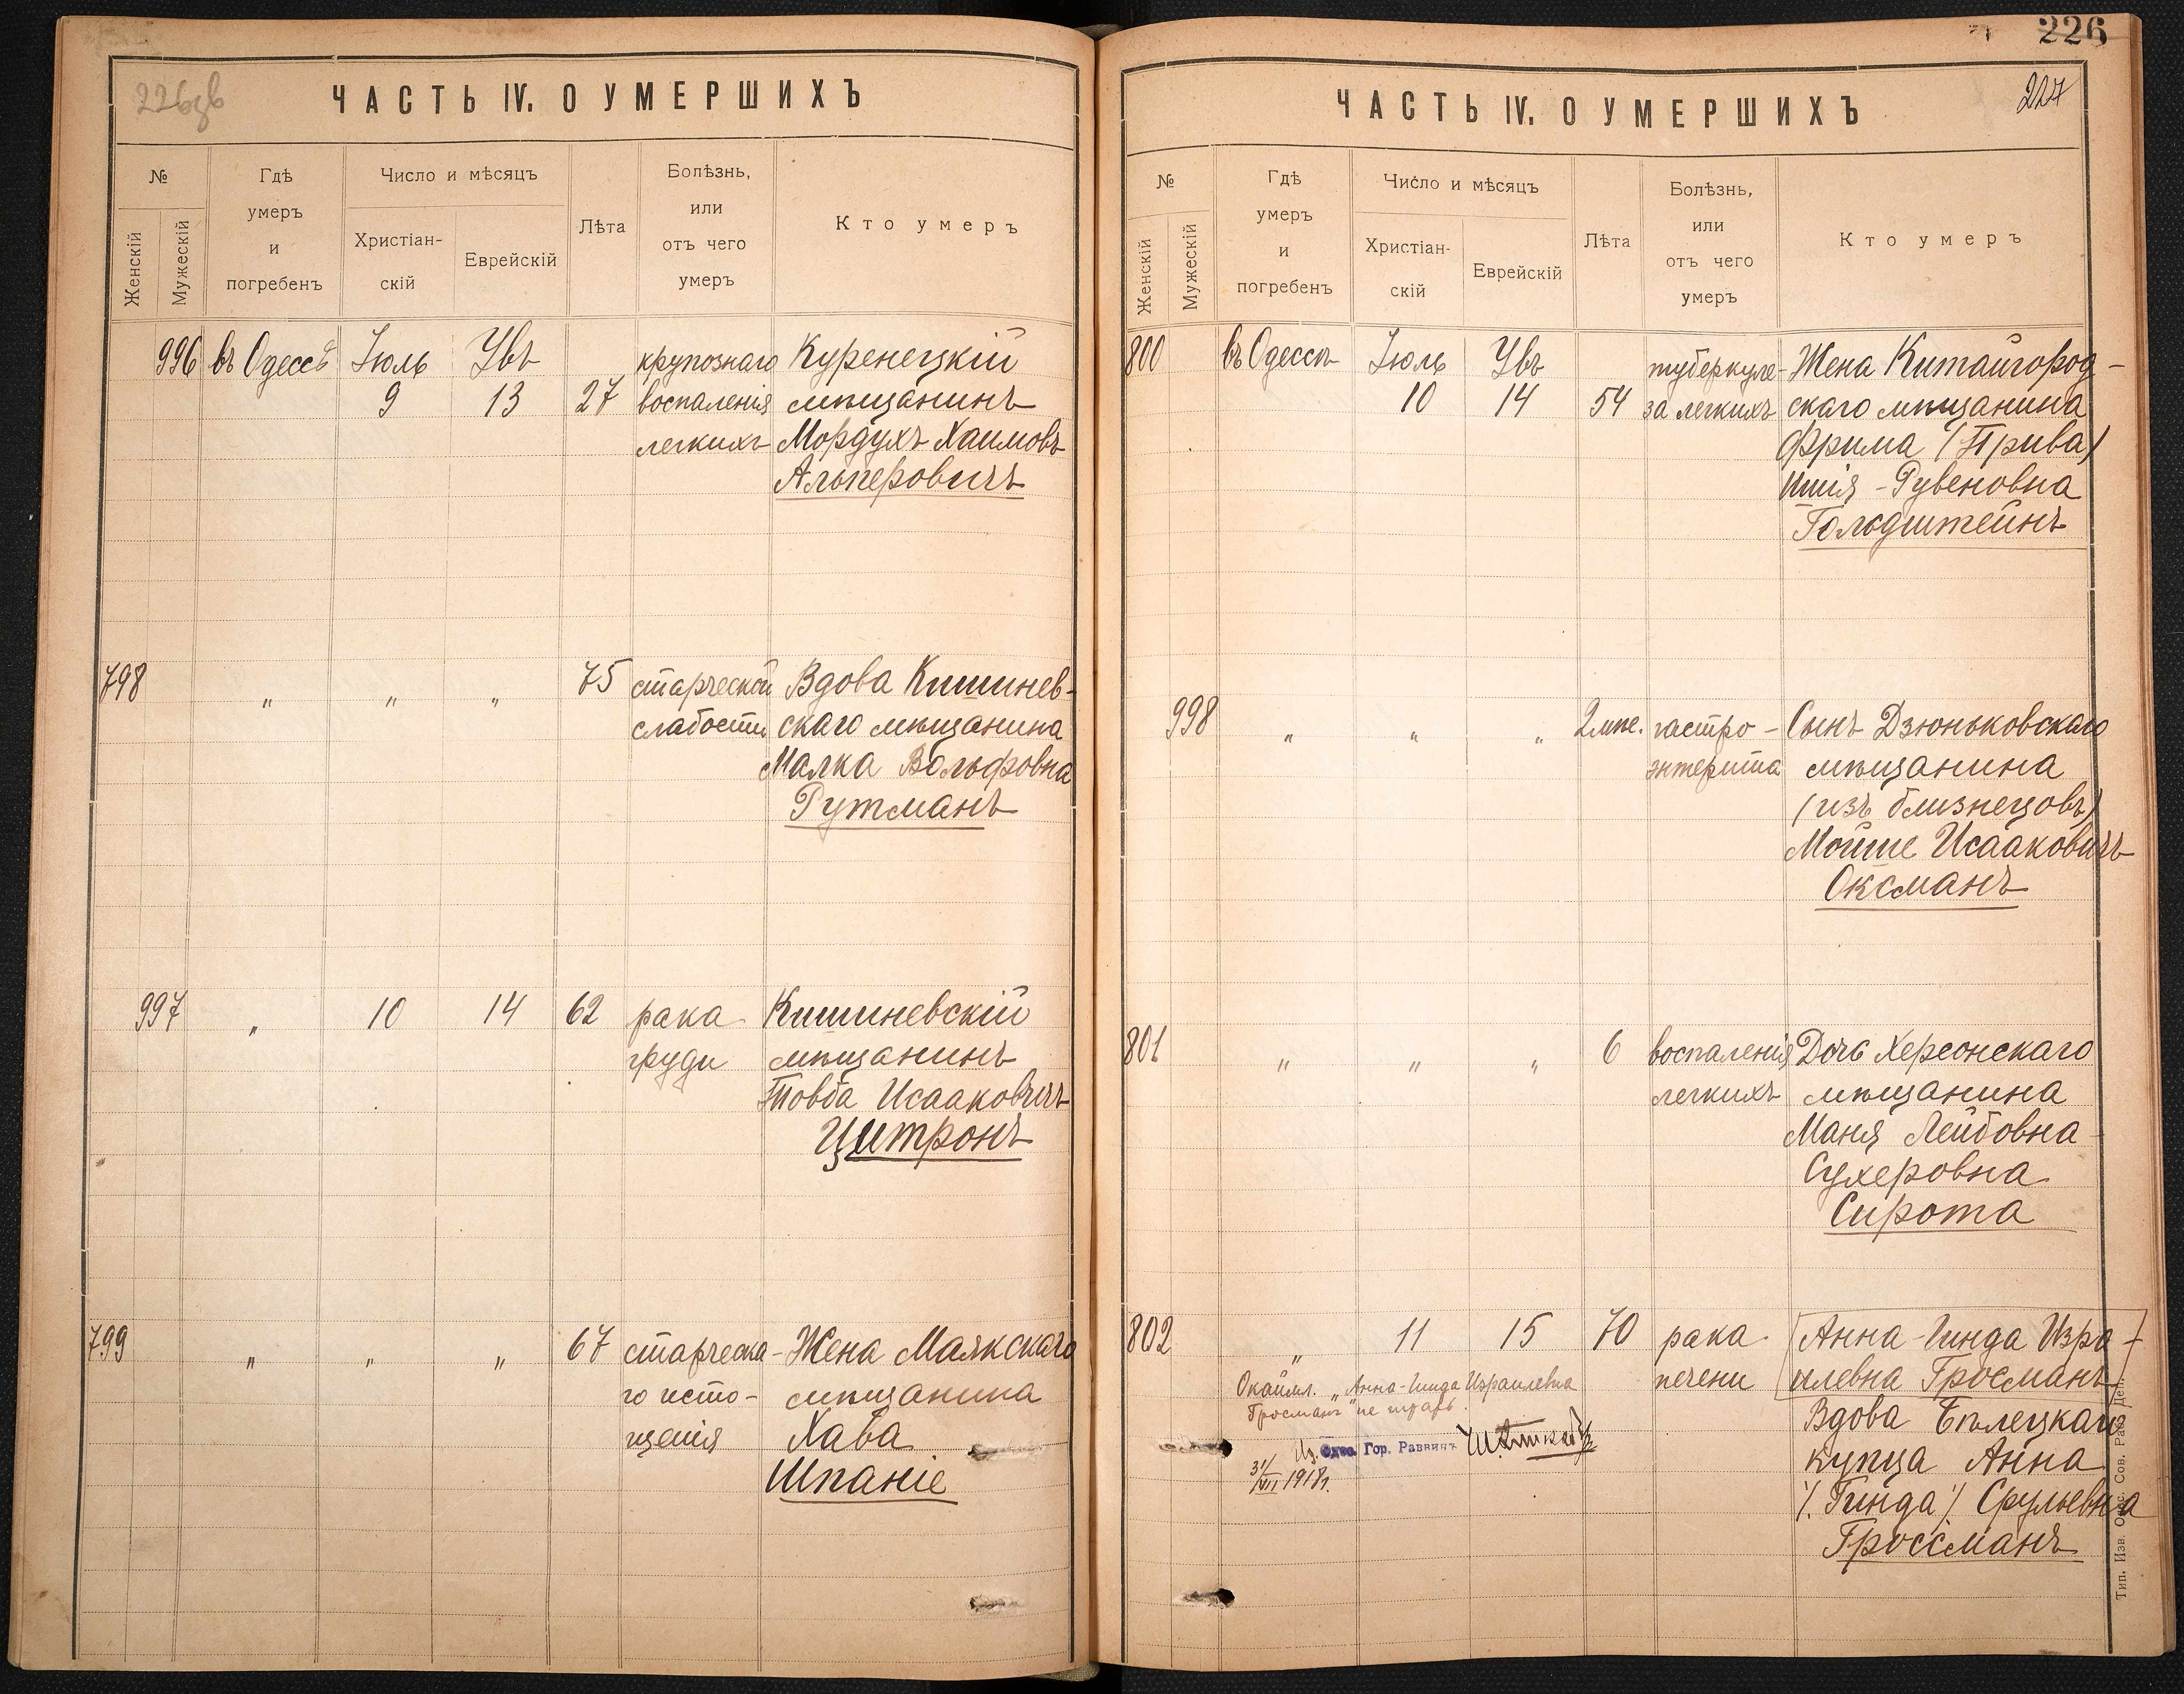 226зв
ЧАСТЬ IV. О УМЕРШИХЪ
№
Женскій
Мужескій
Гдѣ
умеръ
и
погребенъ
Число и мѣсяцъ
Христіан-
скій
Еврейскій
Лѣта
Болѣзнь,
или
отъ чего
умеръ
Кто умеръ
996 въ Одессѣ Іюль Увъ крупознаго Куренецкій
9 13 27 воспаленія мѣщанинъ
легкихъ Мордухъ Хаимовъ
Альперовичъ
798 " " " 75 старческой Вдова Кишинев-
слабости скаго мѣщанина
Малка Вольфовна
Рутманъ
997 " 10 14 62 рака Кишиневскій
груди мѣщанинъ
Товба Исааковичъ
Цитронъ
799 " " " 67 старческа- Жена Маякскаго
го исто- мѣщанина
щенія Хава
Шпаніе
226
227
ЧАСТЬ IV. О УМЕРШИХЪ
№
Женскій
Мужескій
Гдѣ
умеръ
и
погребенъ
Число и мѣсяцъ
Христіан-
скій
Еврейскій
Лѣта
Болѣзнь,
или
отъ чего
умеръ
Кто умеръ
800 въ Одессѣ Іюль Увъ туберкуле- Жена Китайгород-
10 14 54 за легкихъ скаго мѣщанина
Фрима (Прива)
Рувеновна
Гольдштейнъ
998 " " " 2 мѣс. гастро- Сынъ Дзюньковскаго
энтерита мѣщанина
(изъ близнецовъ)
Мойше Исааковичъ
Оксманъ
801 " " " 6 воспаленія Дочь Херсонскаго
легкихъ мѣщанина
Маня Лейбовна-
Сухеровна
Сирота
802 " 11 15 70 рака Анна-Гинда Изра-
печени илевна Гросманъ
Вдова Бѣлецкаго
купца Анна
/. Гинда ./ Срульевна
Гроссманъ
Окаймл. "Анна-Гинда Израилевна
Гросманъ" не чтать.
Гор. Раввинъ
31/VII 1918г.
Тип. Изв. Одес. Сов. Раб. Деп.